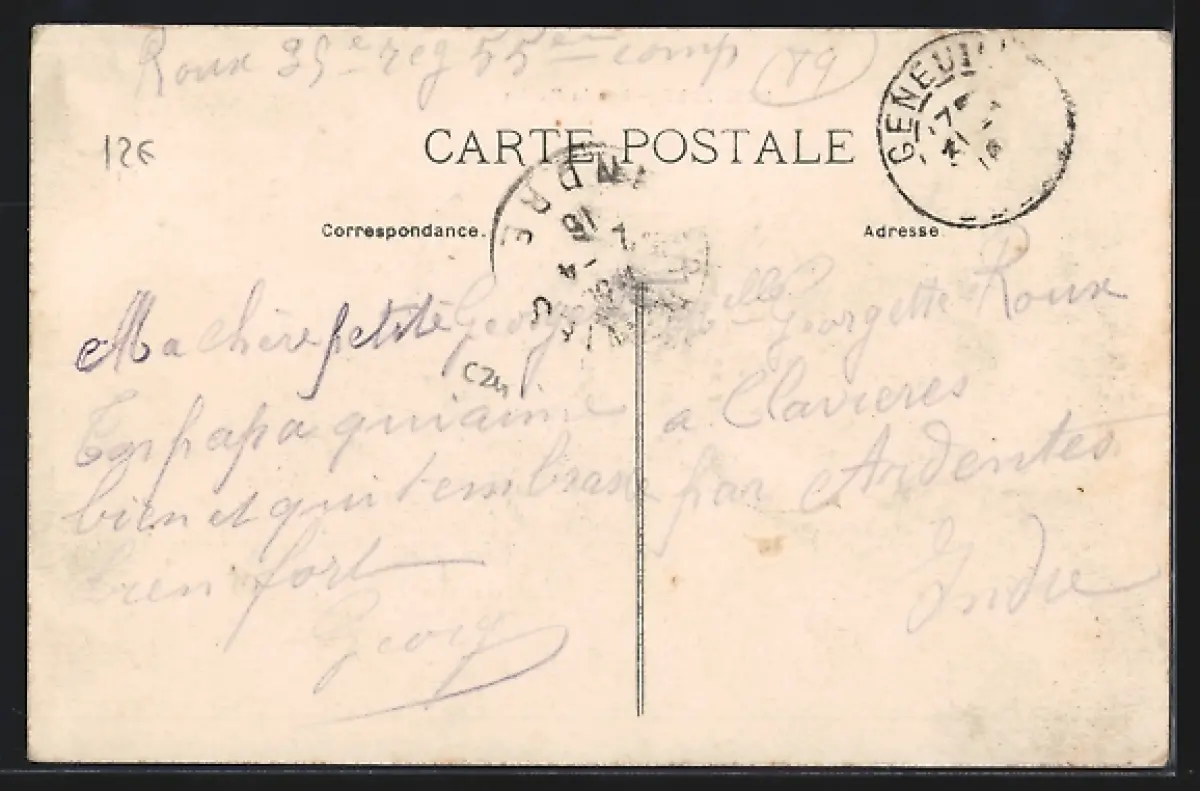 Roux 35e reg 55ème comp (79)
12€
CARTE POSTALE
GENEUIL
17
21
16
INDRE
16
4
Correspondance.
Adresse
Ma chère petite Georgette
Ton papa qui aime
bien et qui t'embrasse
bien fort
Georg
C24
Mlle Georgette Roux
a Clavieres
par Ardentes
Indre